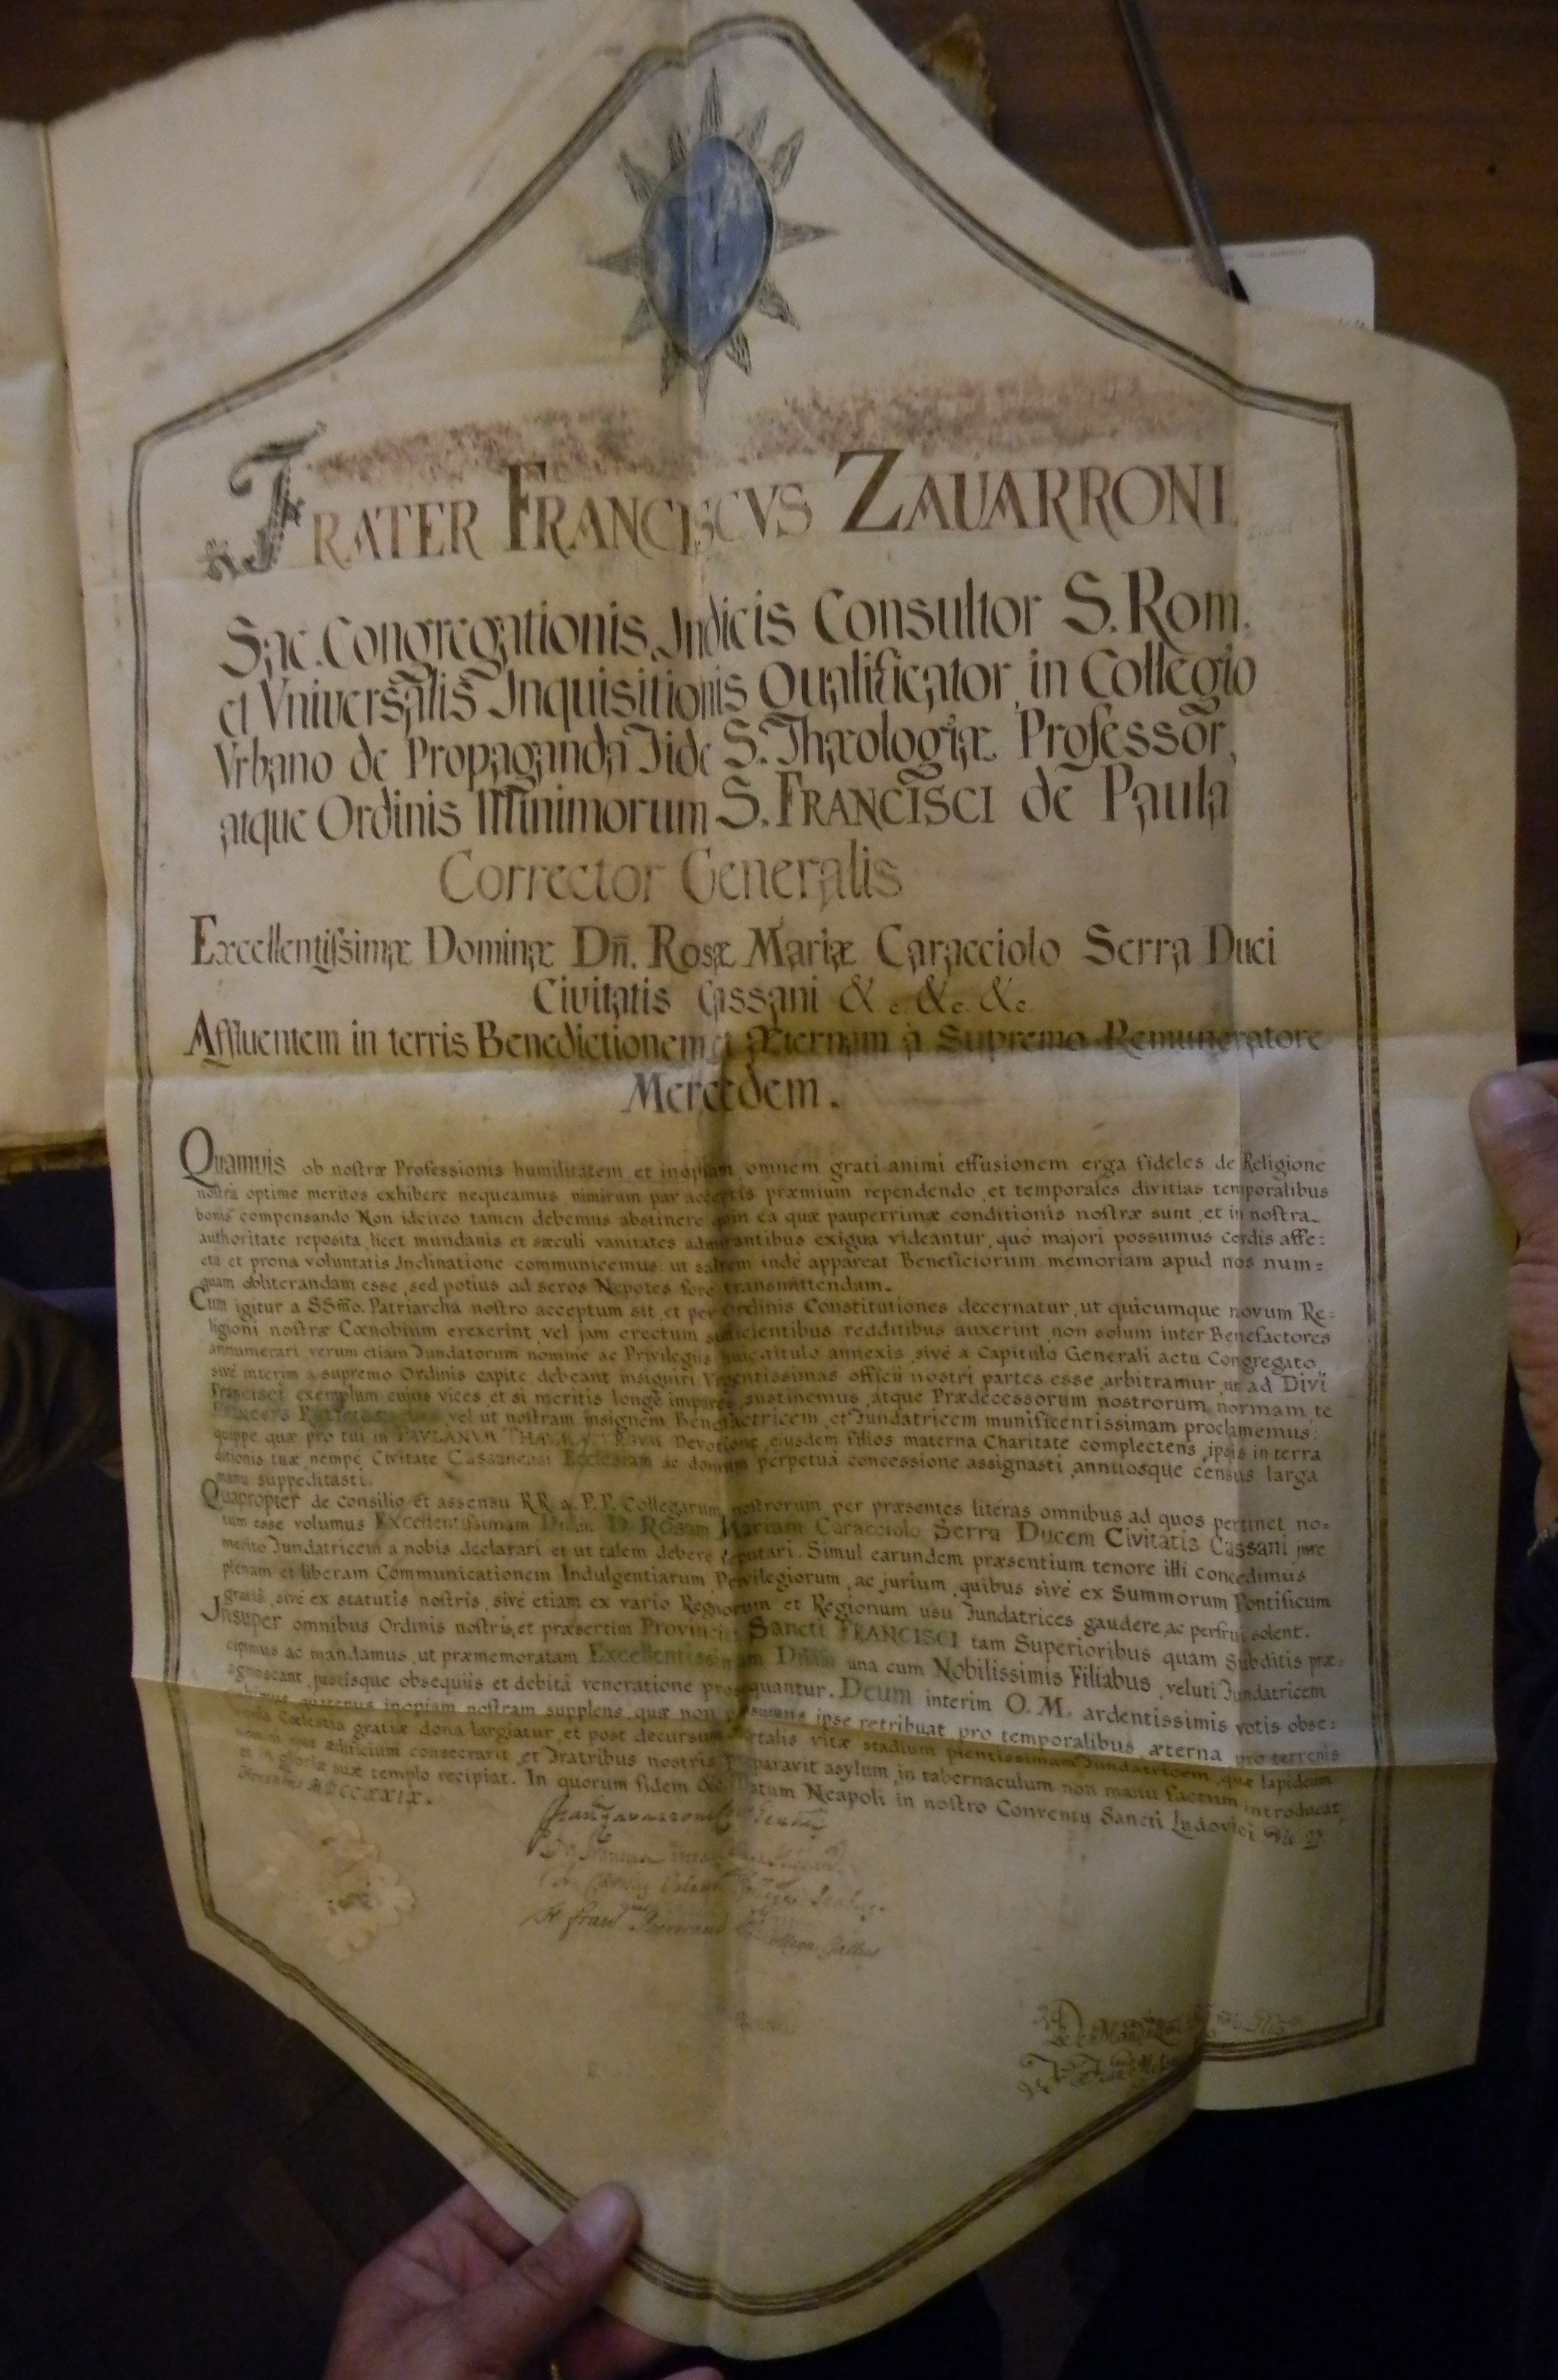 FRATER FRANCISCVS ZAUARRONI
Sac. Congregationis Indicis Consultor S. Rom.
et Vniversalis Inquisitionis Qualificator, in Collegio
Vrbano de Propaganda Fide S. Thæologiæ Professor,
atque Ordinis Minimorum S. FRANCISCI de Paula
Corrector Generalis
Excellentissimæ Dominæ Dñ. Rosæ Mariæ Caracciolo Serra Duci
Civitatis Cassani &c. &c. &c.
Affluentem in terris Benedictionem et æternam à Supremo Remuneratore
Mercedem.
Quamvis ob nostræ Professionis humilitatem et inopiam omnem grati animi effusionem erga fideles de Religione
nostra optime meritos exhibere nequeamus, nimirum par acceptis præmium rependendo, et temporales divitias temporalibus
bonis compensando Non idcirco tamen debemus abstinere quin ea quæ pauperrimæ conditionis nostræ sunt, et in nostra
authoritate reposita, licet mundanis et sæculi vanitates admirantibus exigua videantur, quó majori possumus cordis affe:
ctu et prona voluntatis Inclinatione communicemus: ut saltem indé appareat Beneficiorum memoriam apud nos num=
quam obliterandam esse, sed potius ad seros Nepotes foré transmittendam.
Cum igitur a SSmo. Patriarcha nostro acceptum sit, et per Ordinis Constitutiones decernatur, ut quicumque novum Re=
ligioni nostræ Cœnobium erexerint vel jam erectum sufficientibus redditibus auxerint, non solum inter Benefactores
annumerari, verum etiam Fundatorum nomine ac Privilegiis huic titulo annexis, sivé a Capitulo Generali actu Congregato,
sivé interim a supremo Ordinis capite debeant insigniri Vrgentissimas officii nostri partes esse arbitramur, ut ad Divi
Francisci exemplum cujus vices, et si meritis longé impares, sustinemus, atque Prædecessorum nostrorum normam te
vel ut nostram insignem Benefactricem, et Fundatricem munificentissimam proclamemus:
quippe quæ pro tui in PAVLANVM THAVMATVRGVM Devotione, ejusdem filios materna Charitate complectens, ipsis in terra
ditionis tuæ nempé Civitate Cassanensi Ecclesiam ac domum perpetuá concessione assignasti, annuosque census larga
manu suppeditasti.
Quapropter de consilio et assensu RR. a. P.P. Collegarum nostrorum per præsentes literas omnibus ad quos pertinet no=
tum esse volumus Excellentissimam Dñam D. Rosam Mariam Caracciolo Serra Ducem Civitatis Cassani jure
merito Fundatricem a nobis declarari et ut talem debere reputari. Simul earundem præsentium tenore illi concedimus
plenam et liberam Communicationem Indulgentiarum, Privilegiorum, ac jurium, quibus sivé ex Summorum Pontificum
gratiá, sivé ex statutis nostris, sivé etiam ex vario Regnorum et Regionum usu Fundatrices gaudere, ac perfrui solent.
Insuper omnibus Ordinis nostris, et præsertim Provinciæ Sancti FRANCISCI tam Superioribus quam Subditis præ=
cipimus ac mandamus, ut præmemoratam Excellentissimam Dñam una cum Nobilissimis Filiabus, veluti Fundatricem
agnoscant, justisque obsequiis et debitá veneratione prosequantur. Deum interim O. M. ardentissimis votis obse:
quatenus inopiam nostram supplens, quæ non possumus ipse retribuat, pro temporalibus, æterna, pro terrenis
Cœlestia gratiæ dona largiatur, et post decursum mortalis vitæ stadium pientissimam Fundatricem, quæ lapideum
ædificium consecravit, et Fratribus nostris præparavit asylum, in tabernaculum non manu factum introducat,
et in gloriæ suæ templo recipiat. In quorum fidem &c. Datum Neapoli in nostro Conventu Sancti Ludovici Die 27
Novembris MDCCXXIX.